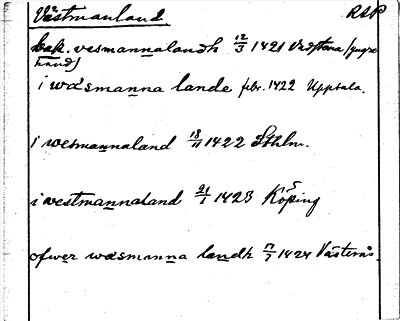 Västmanland RAP
bak. vesmannalandh 12/3 1421 Vadstena (yngre
hand)
i wäsmanna lande febr. 1422 Uppsala.
i wesmannaland 18/11 1422 Sthlm.
i westmannaland 21/1 1423 Köping
ofwer wäsmanna landh 17/7 1424 Västerås.